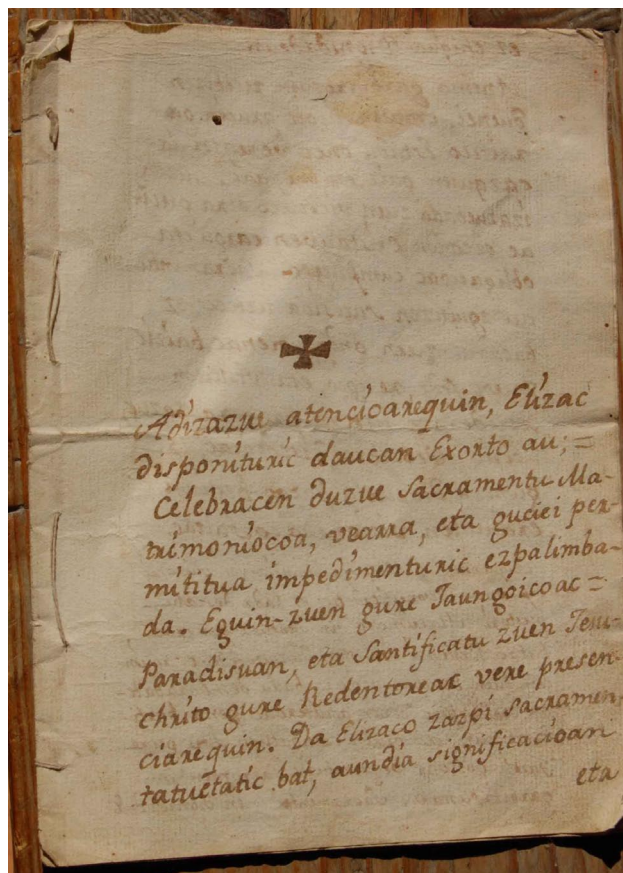 Adizazue atencioarequin, Elizac
disponituric daucan Exorto au; =
Celebracen duzue Sacramentu Ma-
trimoniocoa, vearra, eta guciei per-
mititua impedimenturic ezpalimba-
da. Eguin-zuen gure Jaungoicoac =
Paradisuan, eta Santificatu zuen Jesu-
christo gure Redentoreac vere presen-
ciarequin. Da Elizaco zazpi Sacramen,
tatuetatic bat, aundia significacioan
eta